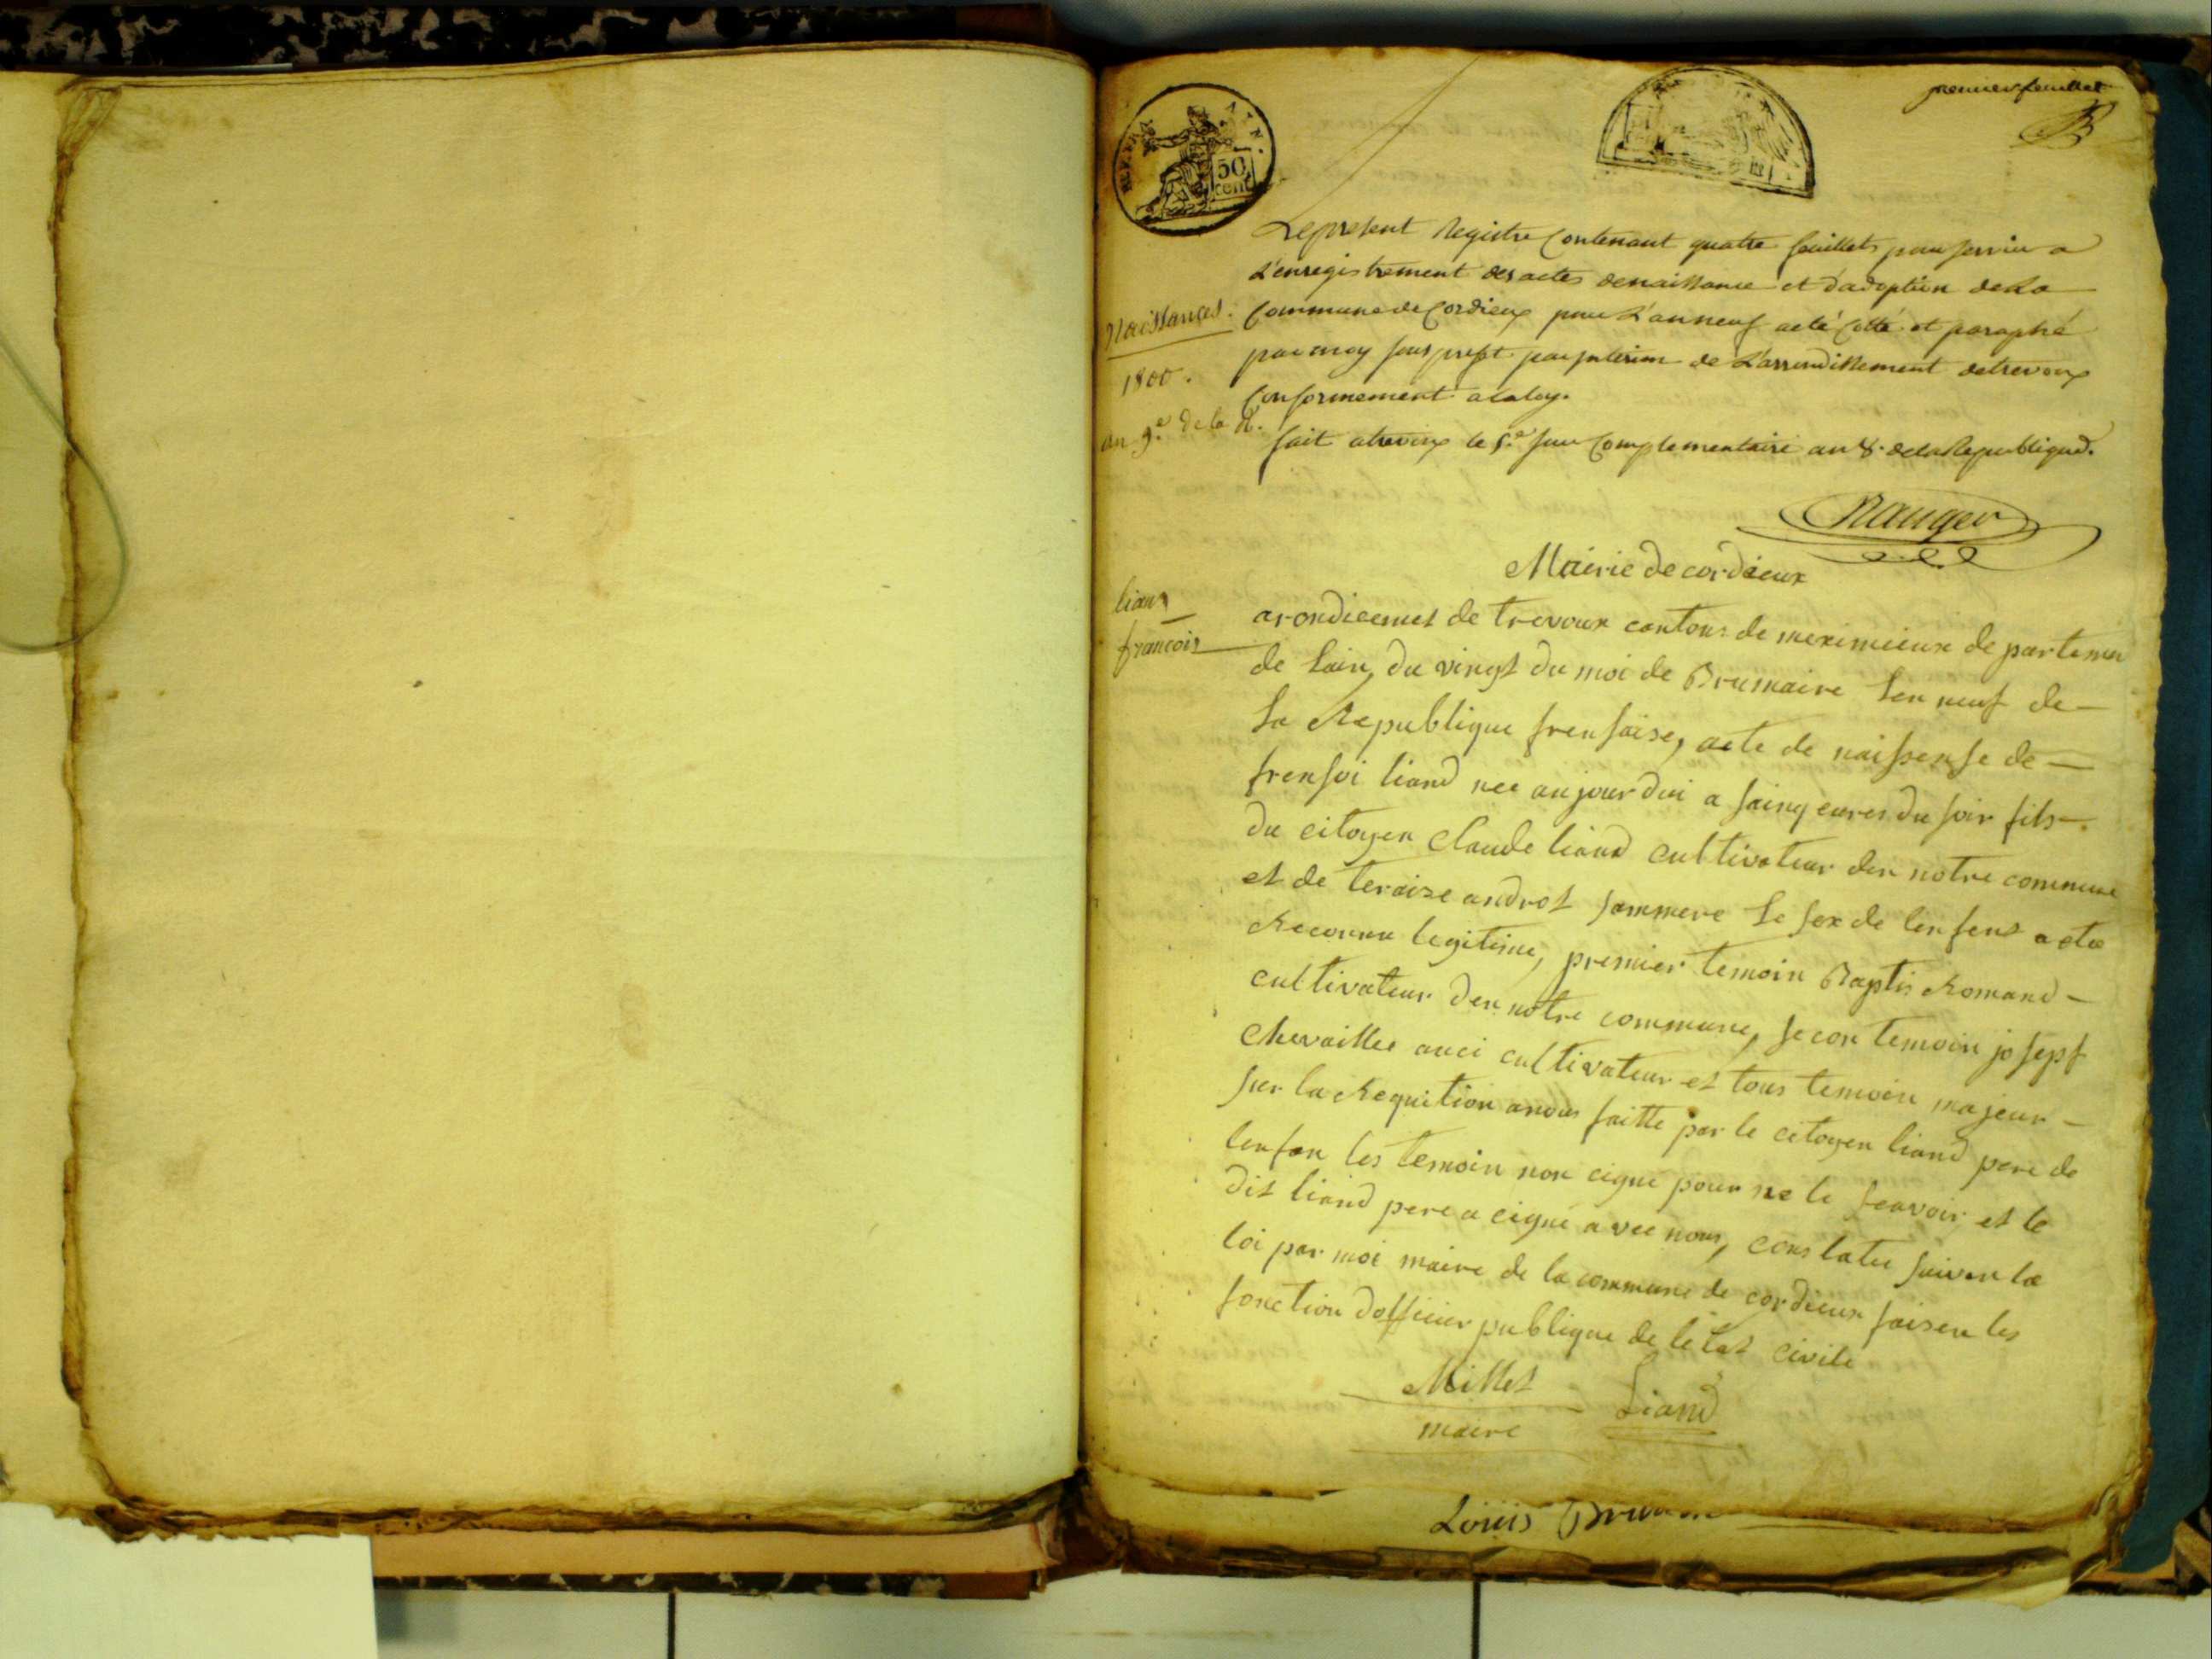 premier feuillet
REP. FRA
AYN.
50
cent
Le present Registre Contenant quatre feuillets pour servir a
L'enregistrement des actes denaissance et d'adoption dela
Commune de Cordieux pour L'an neuf a eté Cotté et paraphé
par moy sous prefet par interim de L'arrondissement detrevoux
Conformement alaloy.
fait atrevoux le 5.e Jour Complementaire an 8. dela Republique.
Naissances.
1800.
an 9.e de la R.
Nauger
Mairie de cordieux
liand
francois
arondicemet de trevoux cantons de meximieux de partemen
de Lain, du vingt du moi de Brumaire Len neuf de
La Republique frensaise, acte de naissense de
frensoi liand nee aujourdui a sainq eures du soir fils
du citoyen Claude liand cultivateur den notre commune
et de teraise androt sammere Le sex de lenfent a ete
Reconnu legitime, premier temoin Baptis Romand
cultivateur den notre commune, secon temoin josepf
Chevaillee auci cultivateur et tous temoin majeur
sur la Requition anous faitte par le citoyen liand pere de
lenfan les temoin non cigne pour ne le seavoir et le
dit liand pere a cigné avec nous, constatee suiven la
loi par moi maire de la commune de cordieux faisen les
fonction dofficier publique de letat civile
Millet
maire
Liand
Louis